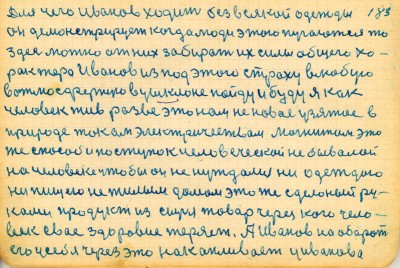 Для чего Иванов ходит без всякой одежды 183
он демонстрирует когда люди этого пугаются то
здесь можно от них забират их силы общего хо-
рактера Иванов из под этого страху в любую
вотмосферную в уликлоне пойду и буду я как
человек жив разве это нам не новое узятое в
природе током электричеством магнитом это
же способ и поступок человеческой не бывалой
на человеке чтобы он не нуждалси ни одеждою
ни пищею не жилым домом это же сделоный ру-
ками продукт из сырья товар через кого чело-
век свае здоровие теряет. А Иванов на оборот
его у себя через это накапливает у иванова